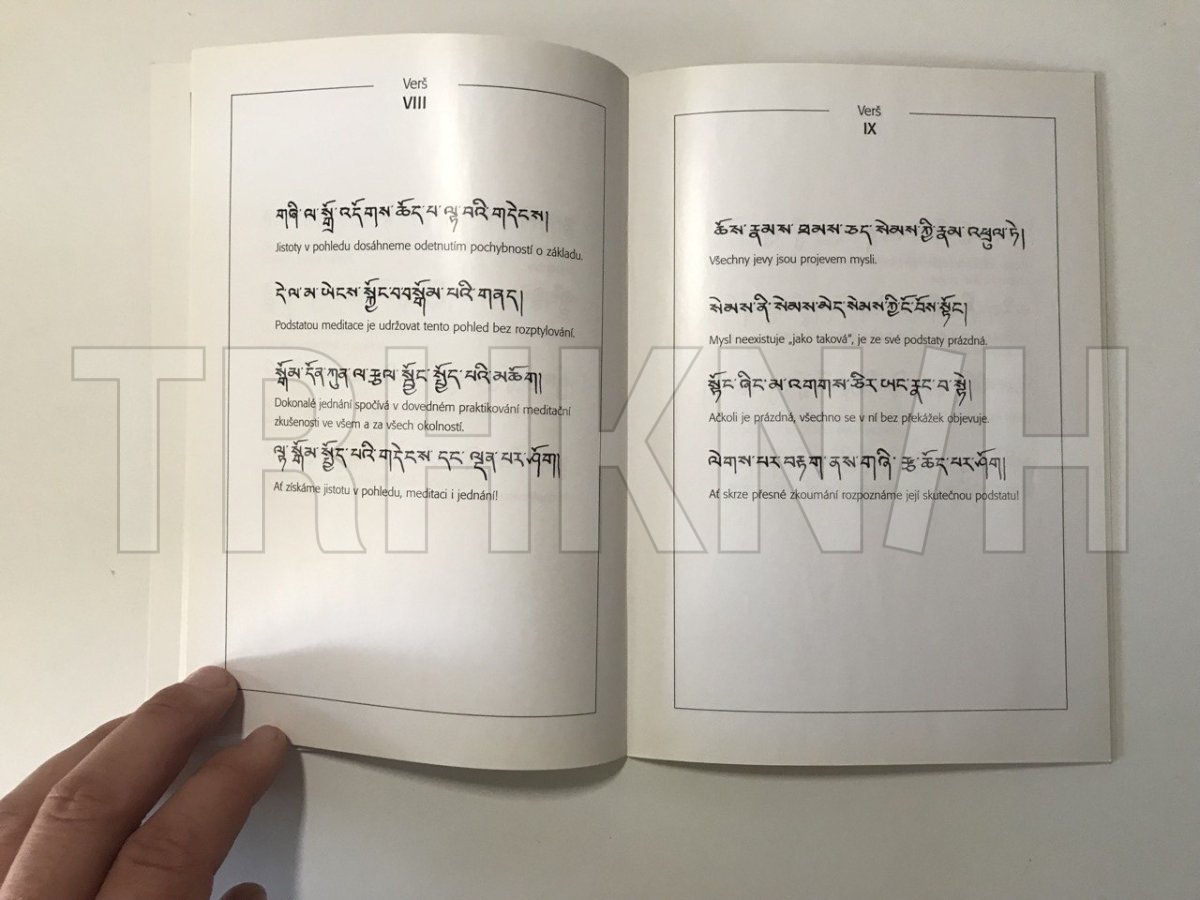 Verš
VIII
གཞི་ལ་སྒྲོ་འདོགས་ཆོད་པ་ལྟ་བའི་གདེངས།
Jistoty v pohledu dosáhneme odetnutím pochybností o základu.
དེ་ལ་མ་ཡེངས་སྐྱོང་བ་བསྒོམ་པའི་གནད།
Podstatou meditace je udržovat tento pohled bez rozptylování.
སྒོམ་དོན་ཀུན་ལ་རྩལ་སྦྱོང་སྤྱོད་པའི་མཆོག།
Dokonalé jednání spočívá v dovedném praktikování meditační
zkušenosti ve všem a za všech okolností.
ལྟ་སྒོམ་སྤྱོད་པའི་གདེངས་དང་ལྡན་པར་ཤོག།
Ať získáme jistotu v pohledu, meditaci i jednání!
Verš
IX
ཆོས་རྣམས་ཐམས་ཅད་སེམས་ཀྱི་རྣམ་འཕྲུལ་ཏེ།
Všechny jevy jsou projevem mysli.
སེམས་ནི་སེམས་མེད་སེམས་ཀྱི་ངོ་བོས་སྟོང།
Mysl neexistuje „jako taková“, je ze své podstaty prázdná.
སྟོང་ཞིང་མ་འགགས་ཅིར་ཡང་སྣང་བ་སྟེ།
Ačkoli je prázdná, všechno se v ní bez překážek objevuje.
ལེགས་པར་བརྟག་ནས་གཞི་རྩ་ཆོད་པར་ཤོག།
Ať skrze přesné zkoumání rozpoznáme její skutečnou podstatu!
TRHKNIH